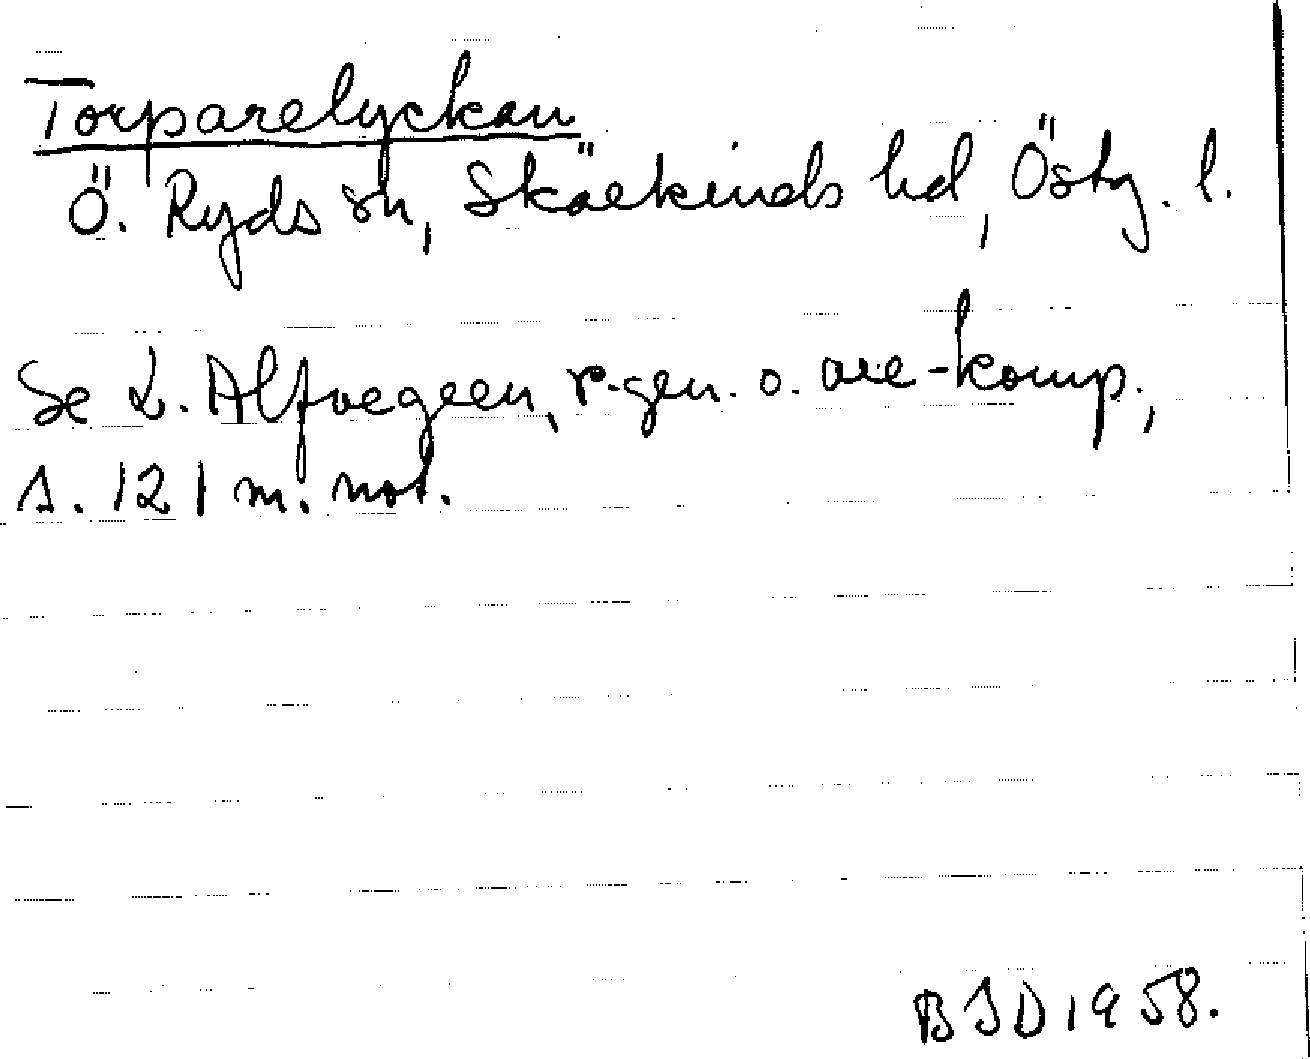 Torparelyckan
Ö. Ryds sn, Skärkinds hd, Östg. l.
Se L. Alfvegren, r-gen. o. are-komp.,
s. 121 m. not.
BID 1958.